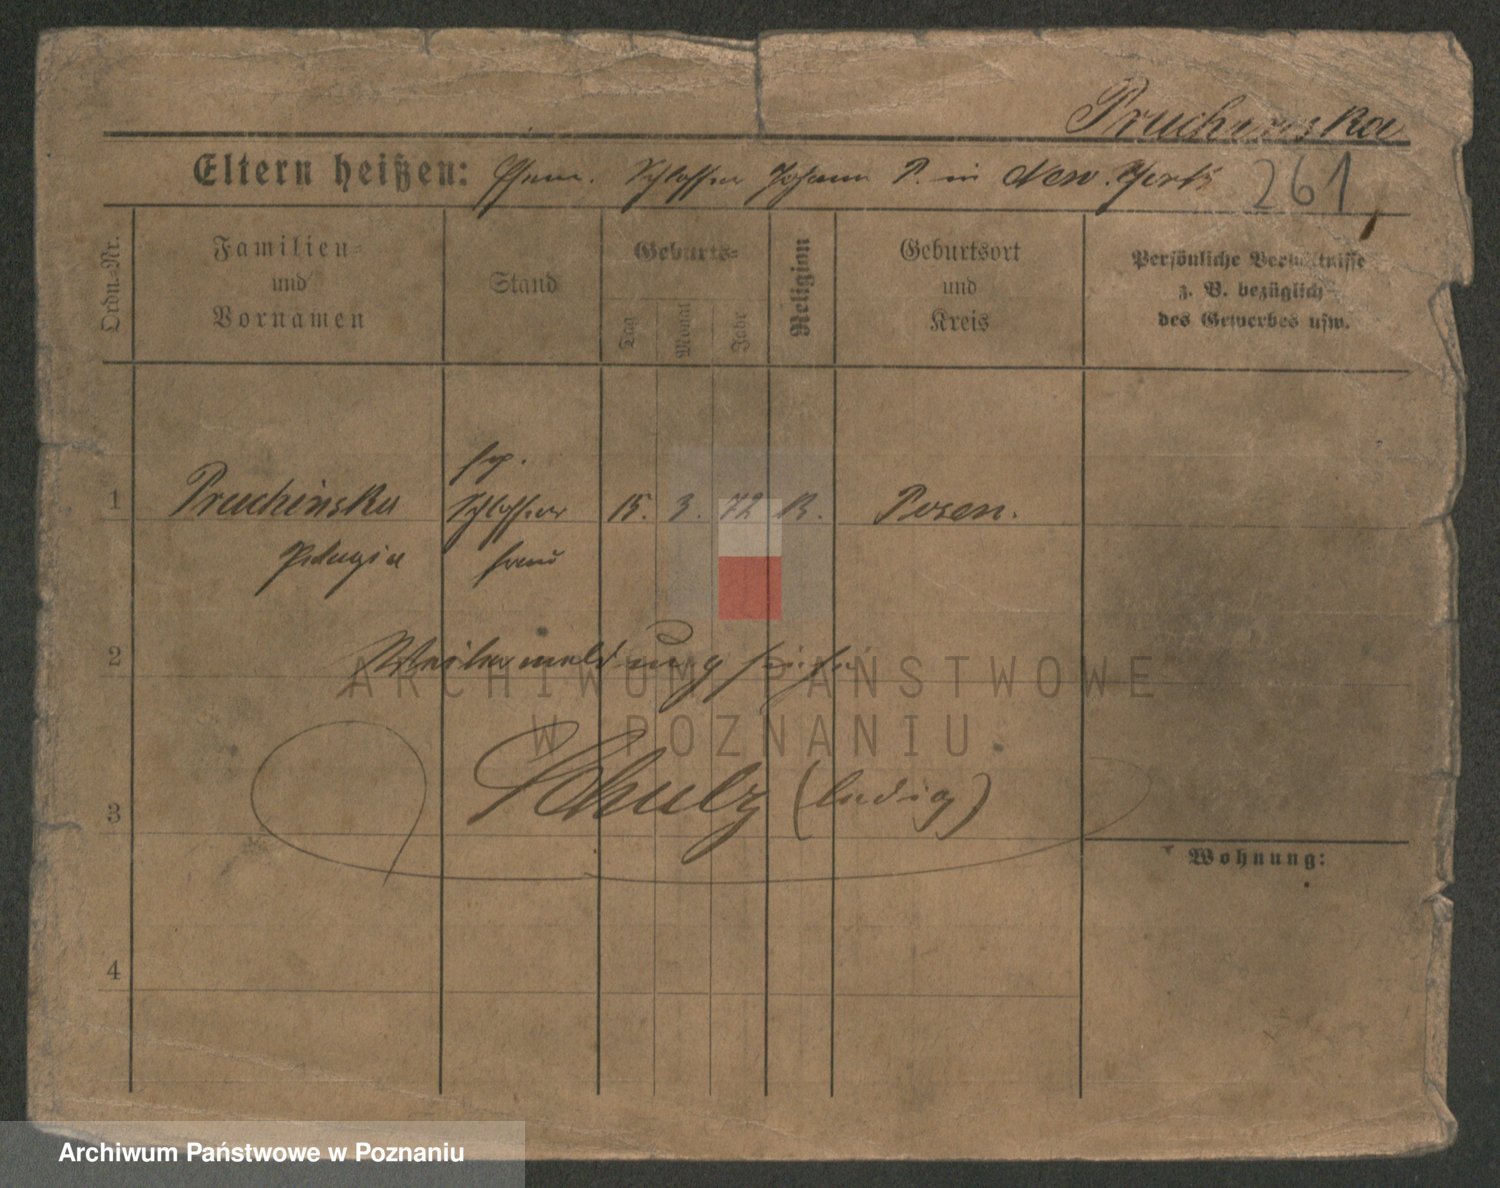 Pruchinska
Eltern heißen: Ehem. Schlosser Johann P. in New. York
261
Ordn.-Nr.
Familien-
und
Vornamen
Stand
Geburts-
Tag
Monat
Jahr
Religion
Geburtsort
und
Kreis
Persönliche Verhältnisse
z. B. bezüglich
des Gewerbes usw.
1
Pruchinska
Pelagia
sep.
Schlosser
frau
15. 3. 72 K. Posen.
2
Weitermeldung siehe
3
Schulz (ledig)
Wohnung:
4
ARCHIWUM PAŃSTWOWE
W POZNANIU
Archiwum Państwowe w Poznaniu